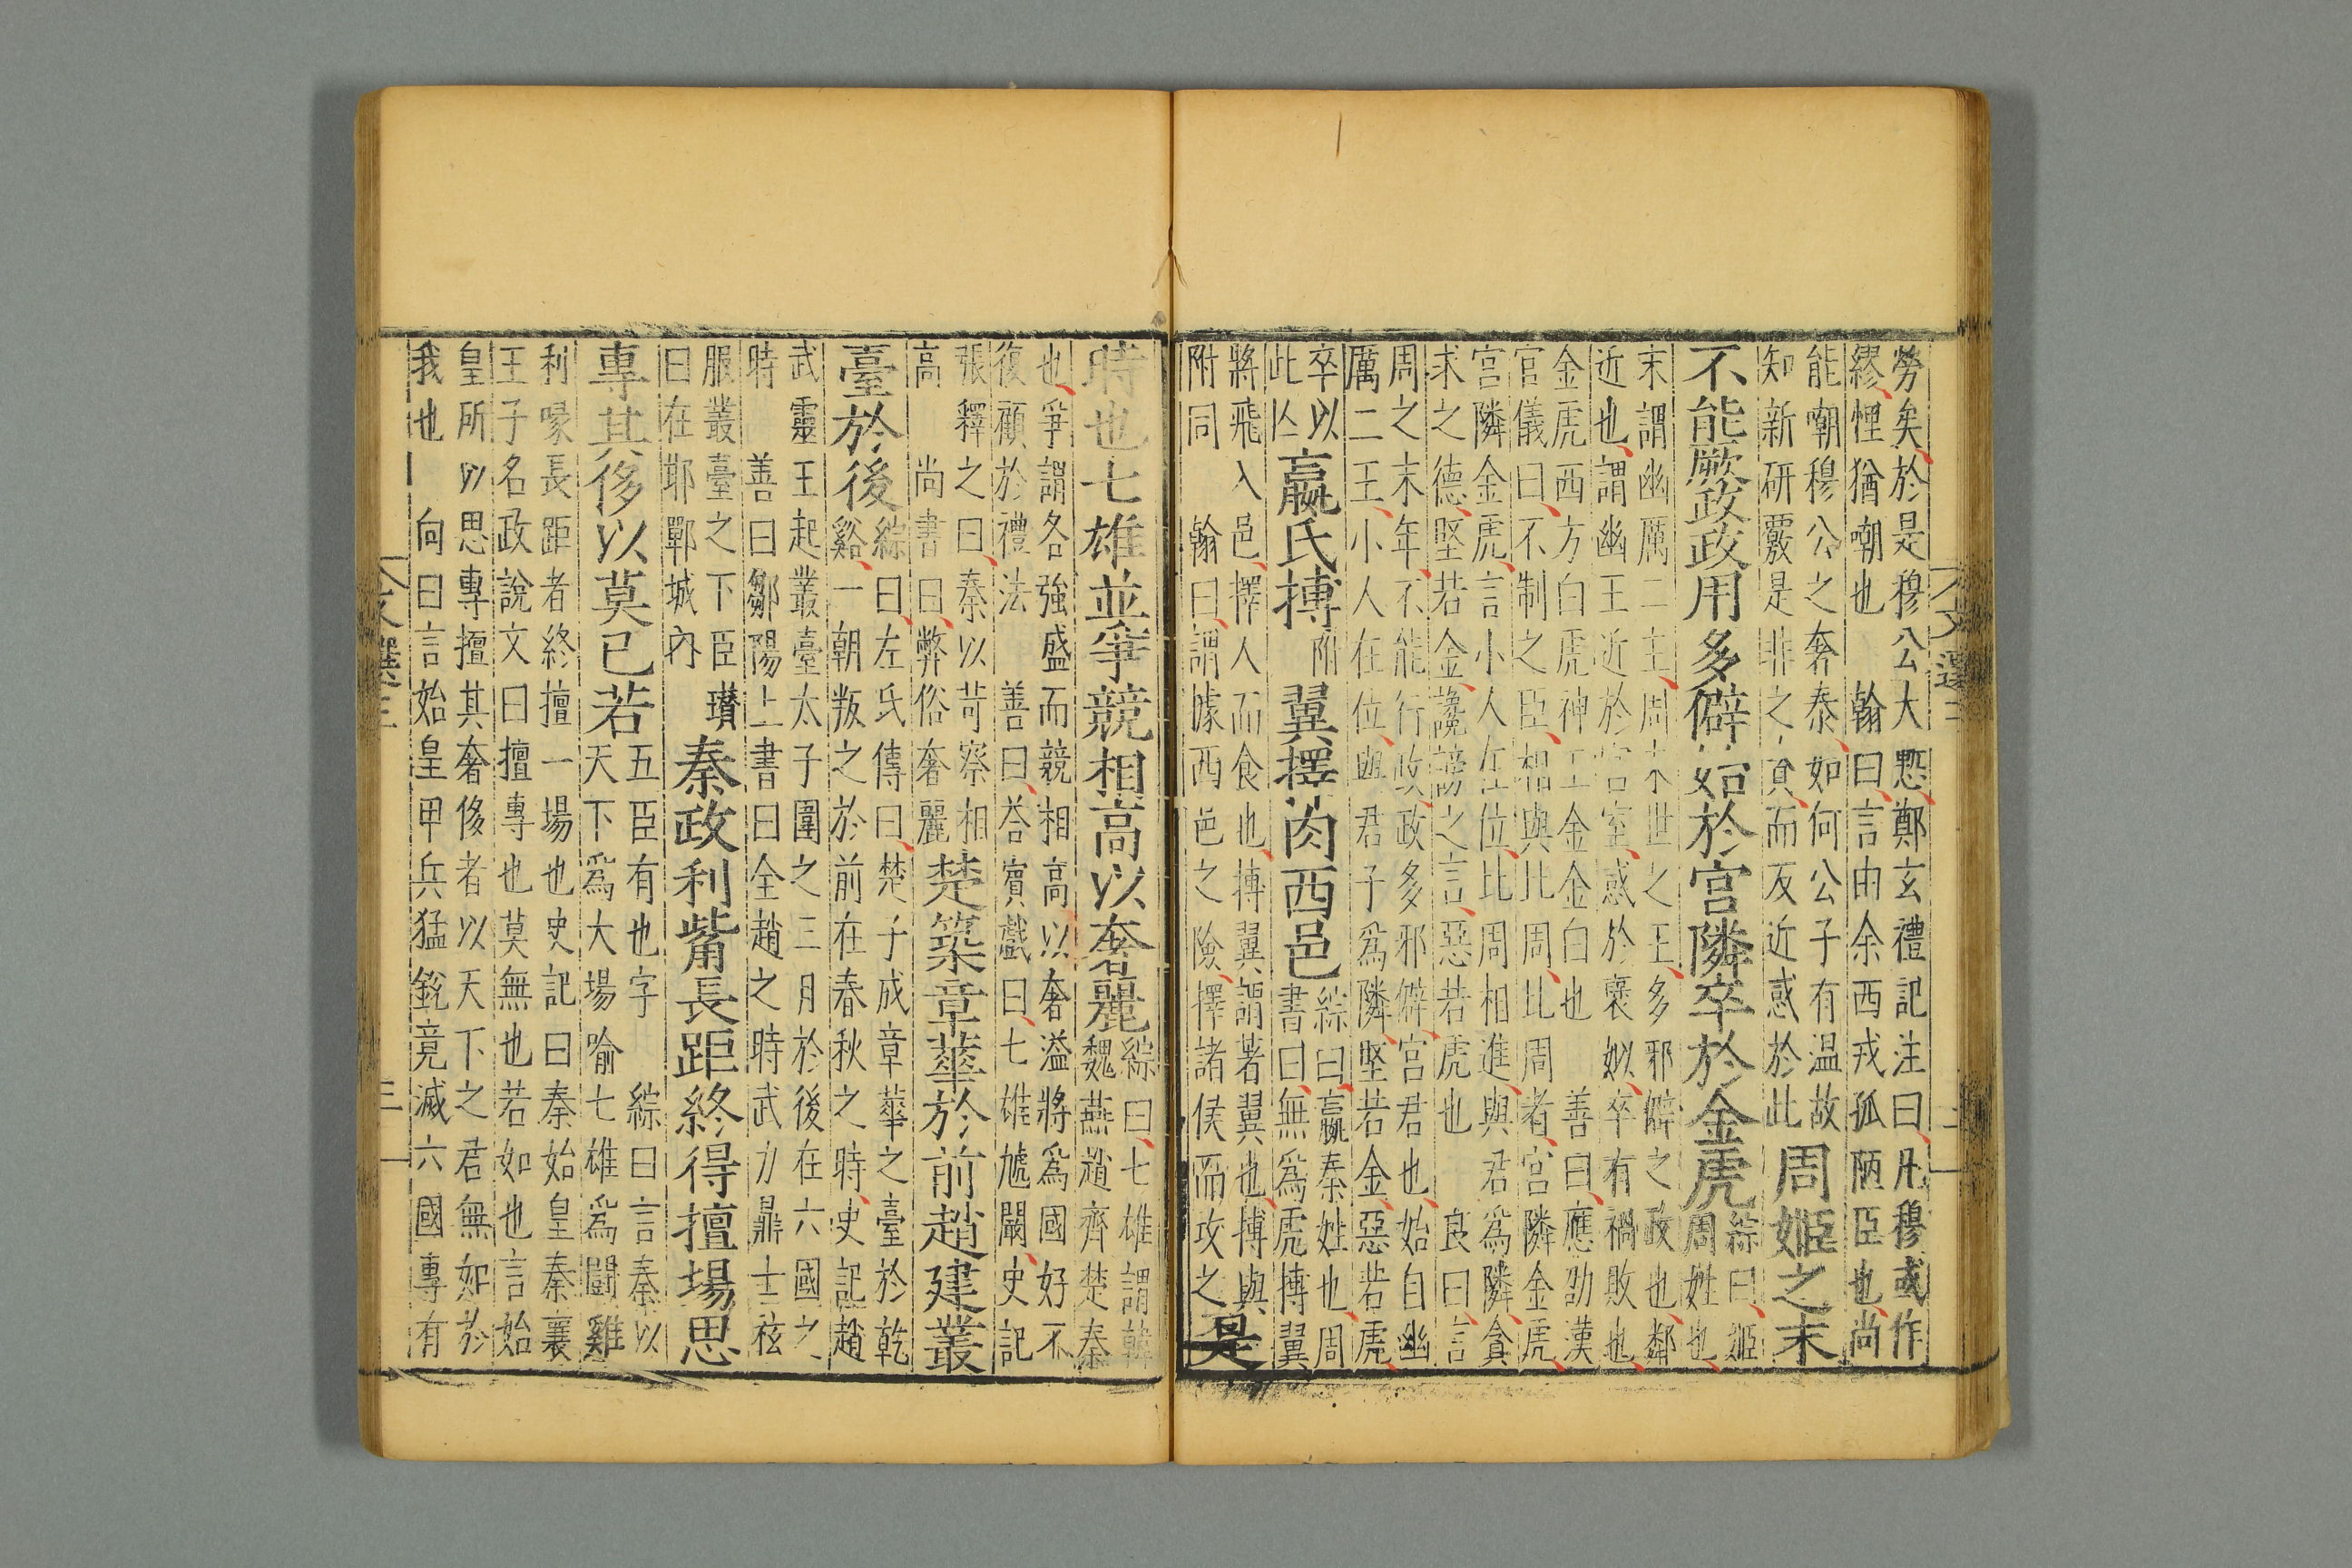 勞矣於是穆公大慙鄭玄禮記注曰凡穆或作
繆悝猶嘲也　翰曰言由余西戎孤陋臣也尚
能嘲穆公之奢泰如何公子有温故
知新研覈是非之　而反近惑於此
周姬之末
不能厥政政用多僻始於宫隣卒於金虎
綜曰姬
周姓也
末謂幽厲二主周末世之王多邪僻之政也鄰
近也謂幽王近於宫室惑於襃姒卒有禍敗也
金虎西方白虎神　金金白也　善曰應劭漢
官儀曰不制之臣相與比周比周者宫隣金虎
宫隣金虎言小人在位比周相進與君爲隣貪
求之德堅若金讒謗之言惡若虎也　良曰言
周之末年不能行政政多邪僻宫君也始自幽
厲二王小人在位與君子爲隣堅若金惡若虎
卒以
此亾
嬴氏搏
附
翼擇肉西邑
綜曰嬴秦姓也周
書曰無爲虎搏翼
將飛入邑擇人而食也搏翼謂著翼也搏與
附同　翰曰謂據西邑之險擇諸侯而攻之
是
時也七雄並爭競相高以奢麗
綜曰七雄謂韓
魏燕趙齊楚秦
也爭謂各強盛而競相高以奢溢將爲國好不
復顧於禮法　善曰荅賓戲曰七雄虓闞史記
張釋之曰秦以苛察相
高　尚書曰弊俗奢麗
楚築章華於前趙建叢
臺於後
綜曰左氏傳曰楚子成章華之臺於乾
谿一朝叛之於前在春秋之時史記趙
武靈王起叢臺太子圍之三月於後在六國之
時　善曰鄒陽上書曰全趙之時武力鼎士袨
服叢臺之下臣瓚
曰在耶鄲城內
秦政利觜長距終得擅場思
專其侈以莫已若
五臣有也字　綜曰言秦以
天下爲大場喻七雄爲鬬雞
利喙長距者終擅一場也史記曰秦始皇秦襄
王子名政說文曰擅專也莫無也若如也言始
皇所以思專擅其奢侈者以天下之君無如於
我也　向曰言始皇甲兵猛銳竟滅六國專有
文選三
三